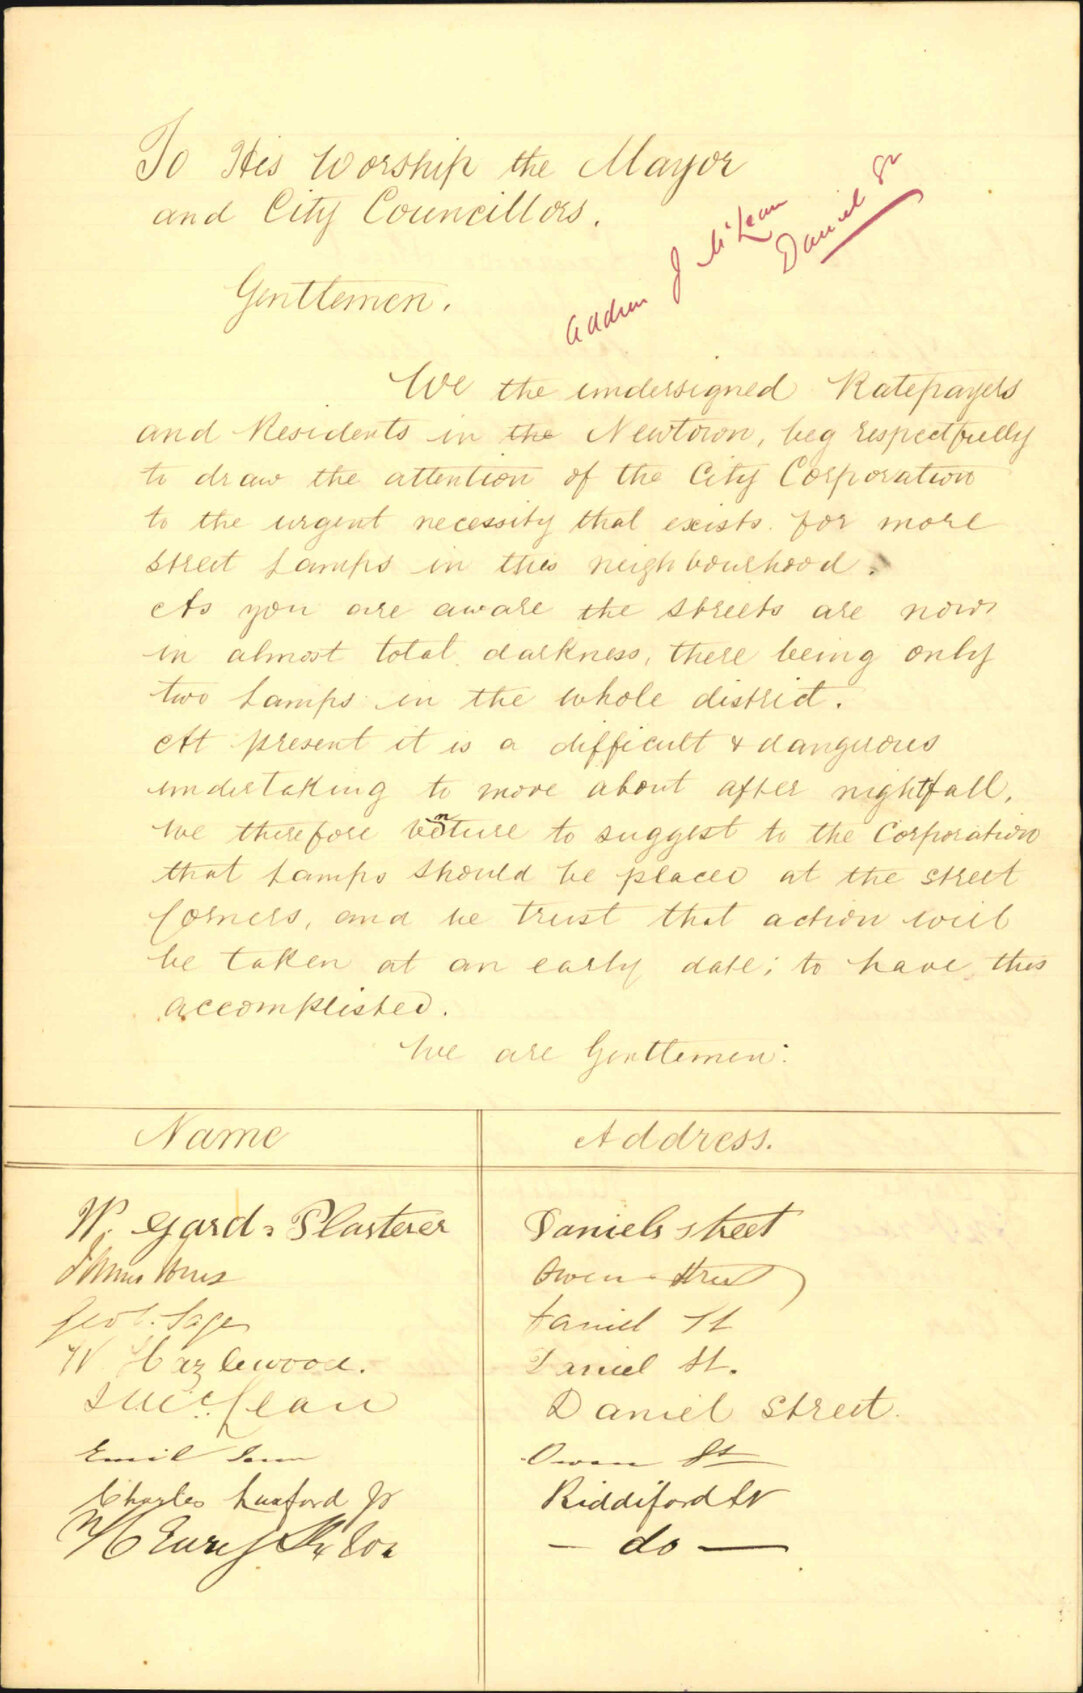 To His Worship the Mayor
and City Councillors.
Address J McLean
Daniel St
Genttemen.
We the undersigned Ratepayers
and Residents in the Newtown, beg respectfully
to draw the attention of the City Corporation
to the urgent necessity that exists for more
street Lamps in this neighbourhood.
As you are aware the streets are now
in almost total darkness, there being only
two Lamps in the whole district.
At present it is a difficult & dangerous
undertaking to move about after nightfall.
We therefore venture to suggest to the Corporation
that Lamps should be placed at the street
Corners, and we trust that action will
be taken at an early date; to have this
accomplished.
We are Genttemen:
Name Address.
W. Gard. Plasterer Daniels street
James Owen Street
Geo. Sage Daniel St
W Hazlewood. Daniel St.
J McLean Daniel Street.
Emil Owen St
Charles Luxford Jr Riddiford St
Henry — do —